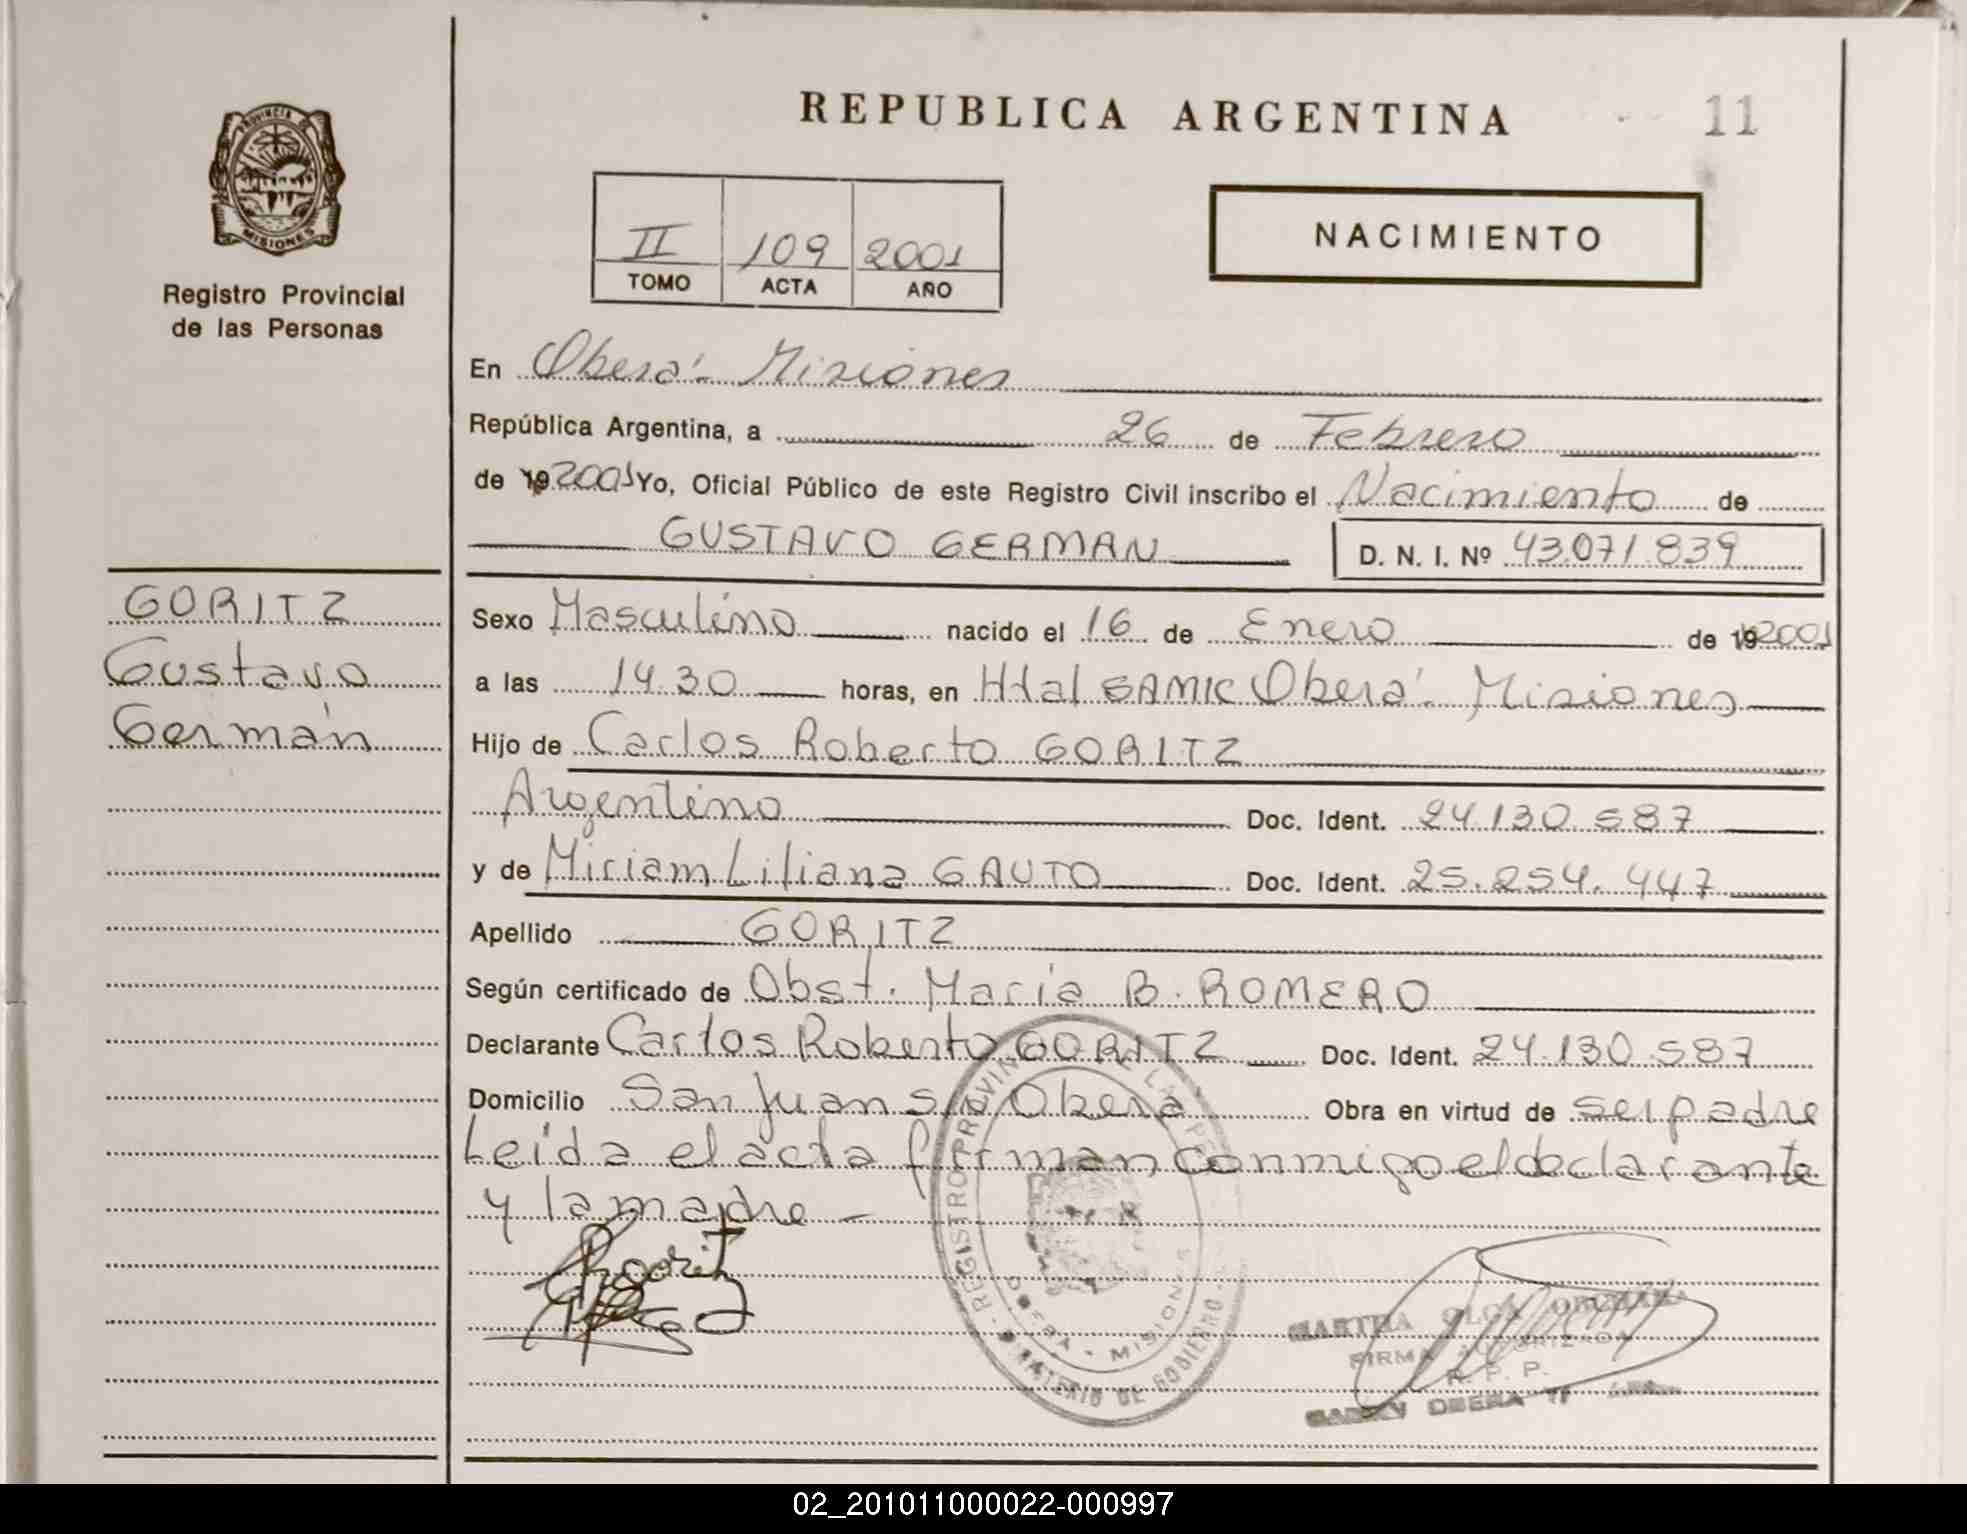 REPUBLICA ARGENTINA
11
PROVINCIA DE
MISIONES
Registro Provincial
de las Personas
II 109 2001
TOMO ACTA AÑO
NACIMIENTO
En Oberá - Misiones
República Argentina, a 26 de Febrero
de 19 2001 Yo, Oficial Público de este Registro Civil inscribo el Nacimiento de
GUSTAVO GERMAN D. N. I. Nº 43.071.839
GORITZ
Gustavo
Germán
Sexo Masculino nacido el 16 de Enero de 19 2001
a las 14.30 horas, en Htal SAMIC Oberá - Misiones
Hijo de Carlos Roberto GORITZ
Argentino Doc. Ident. 24.130.587
y de Miriam Liliana GAUTO Doc. Ident. 25.254.447
Apellido GORITZ
Según certificado de Obst. María B. ROMERO
Declarante Carlos Roberto GORITZ Doc. Ident. 24.130.587
Domicilio San Juan s/n Oberá Obra en virtud de ser padre
Leída el acta firman conmigo el declarante
y la madre -
REGISTRO PROVINCIAL DE LAS PERSONAS
OBERA - MISIONES
MINISTERIO DE GOBIERNO
MARTHA OLGA
FIRMA AUTORIZADA
R. P. P.
OBERA
02_201011000022-000997